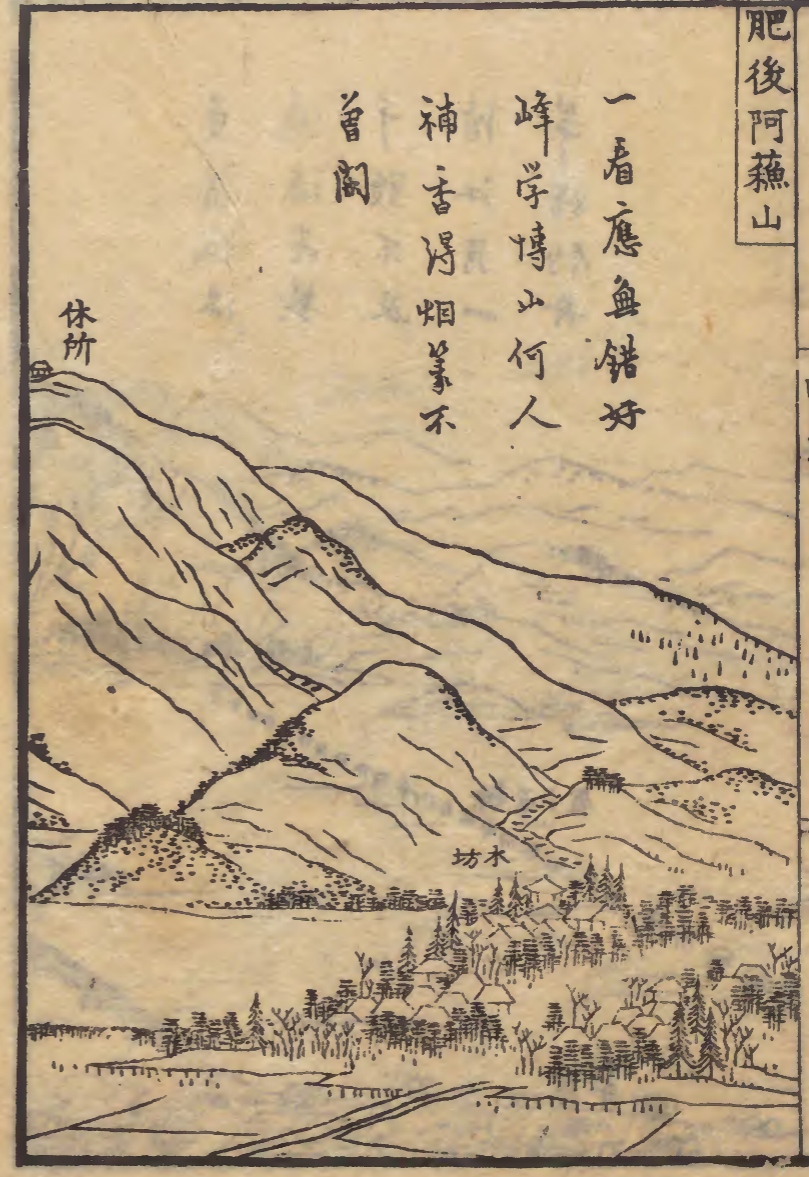 肥後阿蘓山
一看應無錯好
峰学博山何人
補香得烟篆不
曽
休所
坊